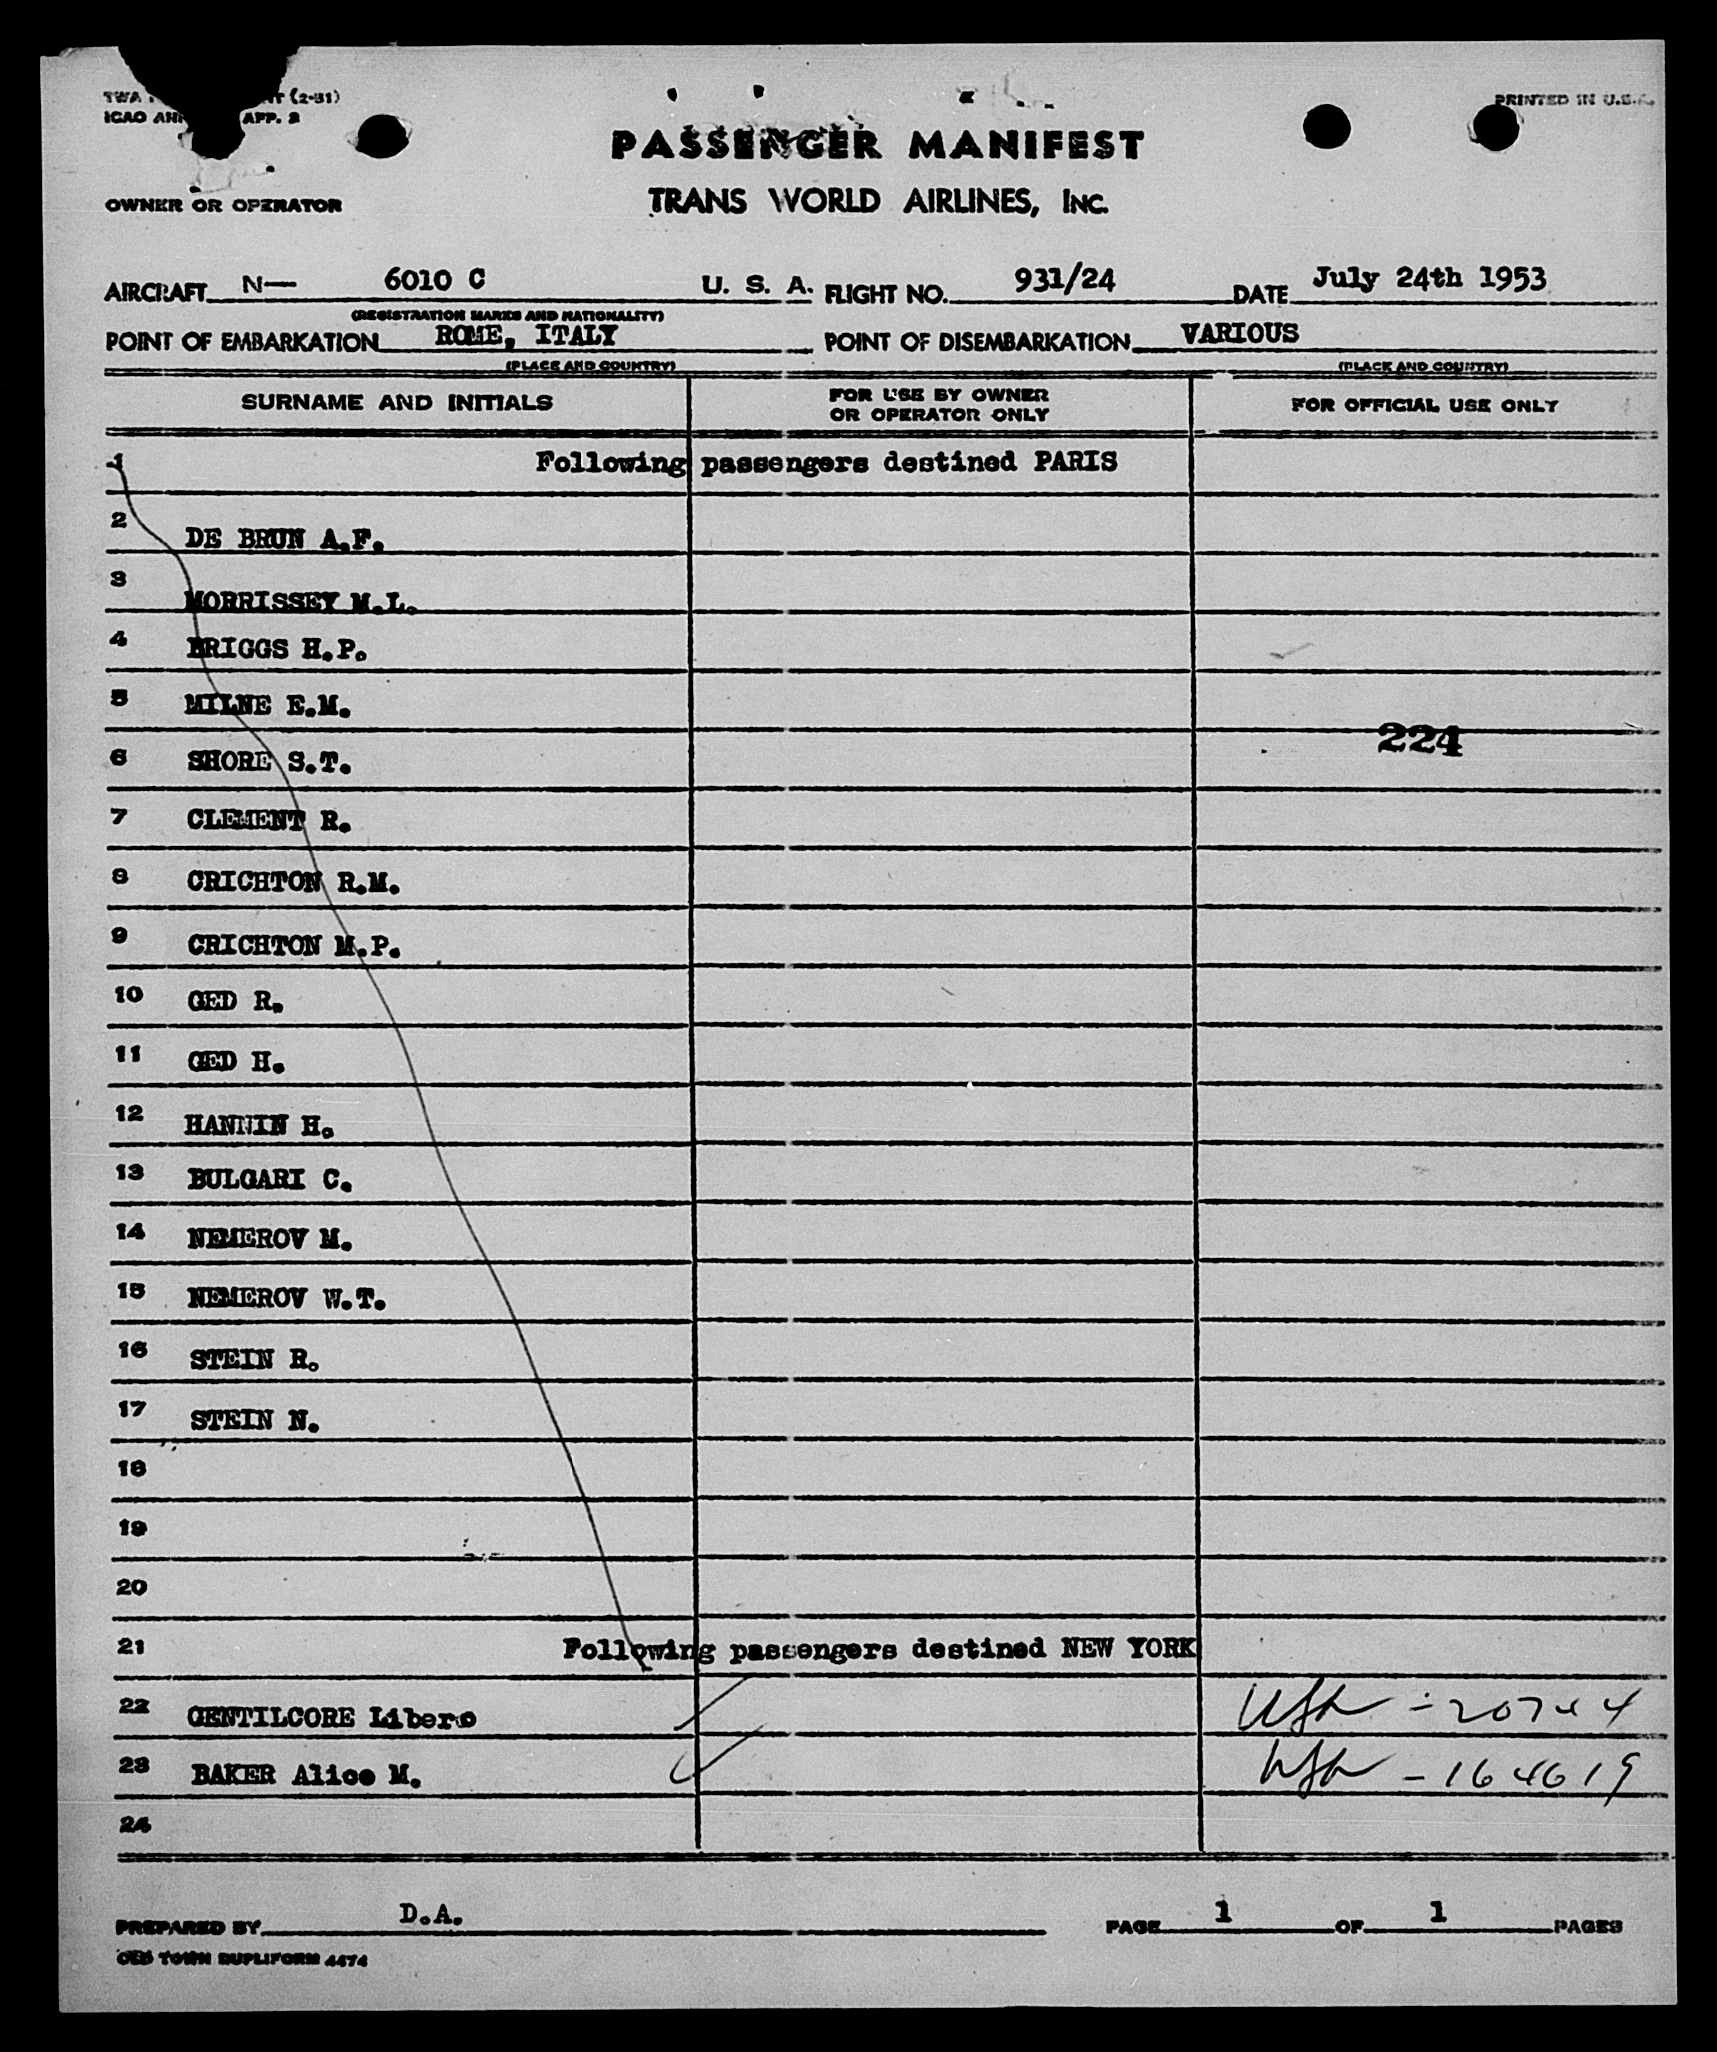 TWA (2-51) PRINTED IN U.S.A.
ICAO APP. 2
PASSENGER MANIFEST
TRANS WORLD AIRLINES, INC.
OWNER OR OPERATOR
AIRCRAFT N— 6010 C U. S. A. FLIGHT NO. 931/24 DATE July 24th 1953
(REGISTRATION MARKS AND NATIONALITY)
POINT OF EMBARKATION ROME, ITALY POINT OF DISEMBARKATION VARIOUS
(PLACE AND COUNTRY) (PLACE AND COUNTRY)
SURNAME AND INITIALS FOR USE BY OWNER OR OPERATOR ONLY FOR OFFICIAL USE ONLY
1 Following passengers destined PARIS
2 DE BRUN A.F.
3 MORRISSEY M.L.
4 BRIGGS H.P.
5 MILNE E.M.
224
6 SHORE S.T.
7 CLEMENT R.
8 CRICHTON R.M.
9 CRICHTON M.P.
10 GED R.
11 GED H.
12 HANNIN H.
13 BULGARI C.
14 NEMEROV M.
15 NEMEROV W.T.
16 STEIN R.
17 STEIN N.
18
19
20
21 Following passengers destined NEW YORK
22 GENTILCORE Libero
23 BAKER Alice M. - 164619
24
PREPARED BY D.A. PAGE 1 OF 1 PAGES
OLD TOWN DUPLIFORM 4474